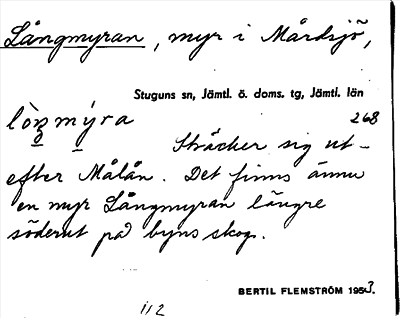 Långmyran, myr i Mårdsjö,
Stuguns sn, Jämtl. ö. doms. tg, Jämtl. län
lòŋmýra 268
Sträcker sig ut-
efter Målån. Det finns ännu
en myr Långmyran längre
söderut på byns skog.
BERTIL FLEMSTRÖM 1953.